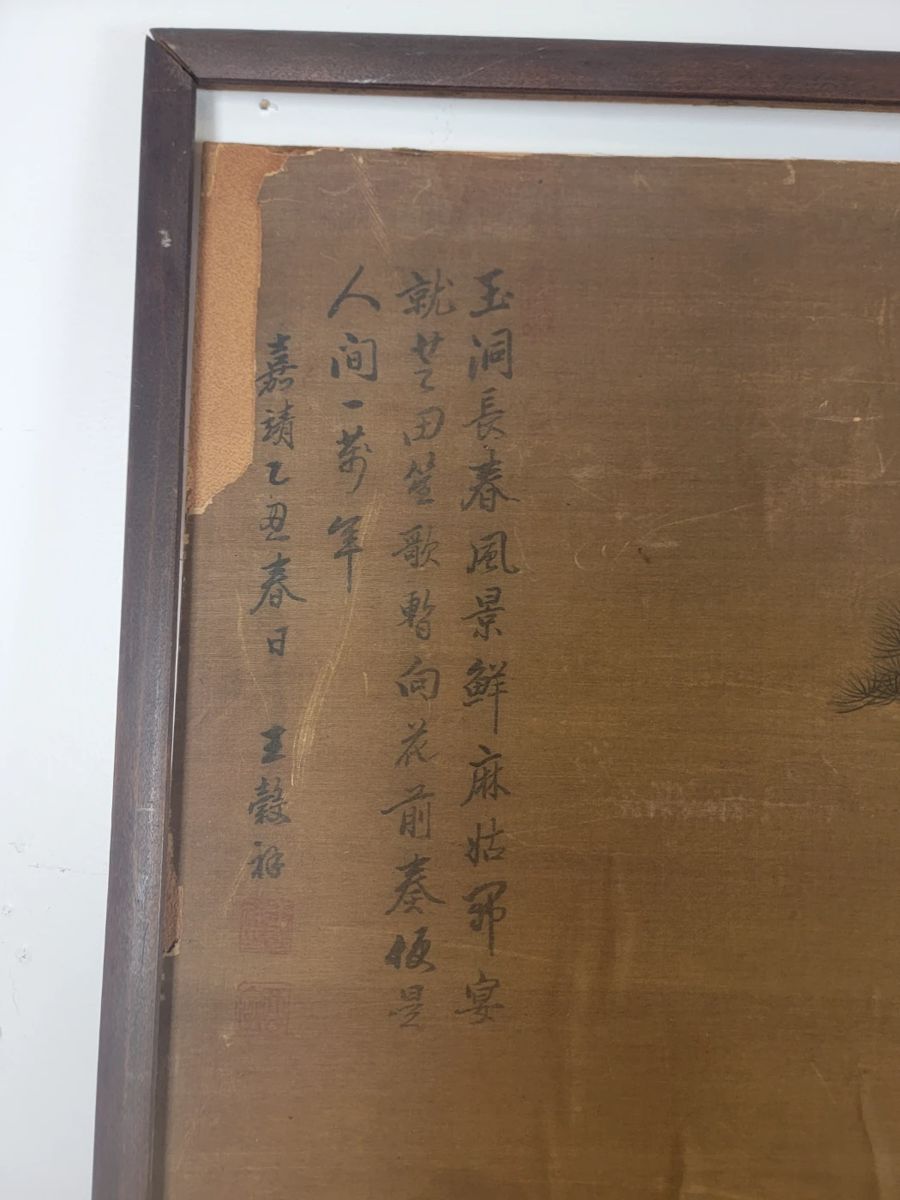 玉洞長春風景鮮麻姑部宴
就芝田笙歌暫向花前奏便是
人间一萬年
嘉靖乙丑春日 王穀祥